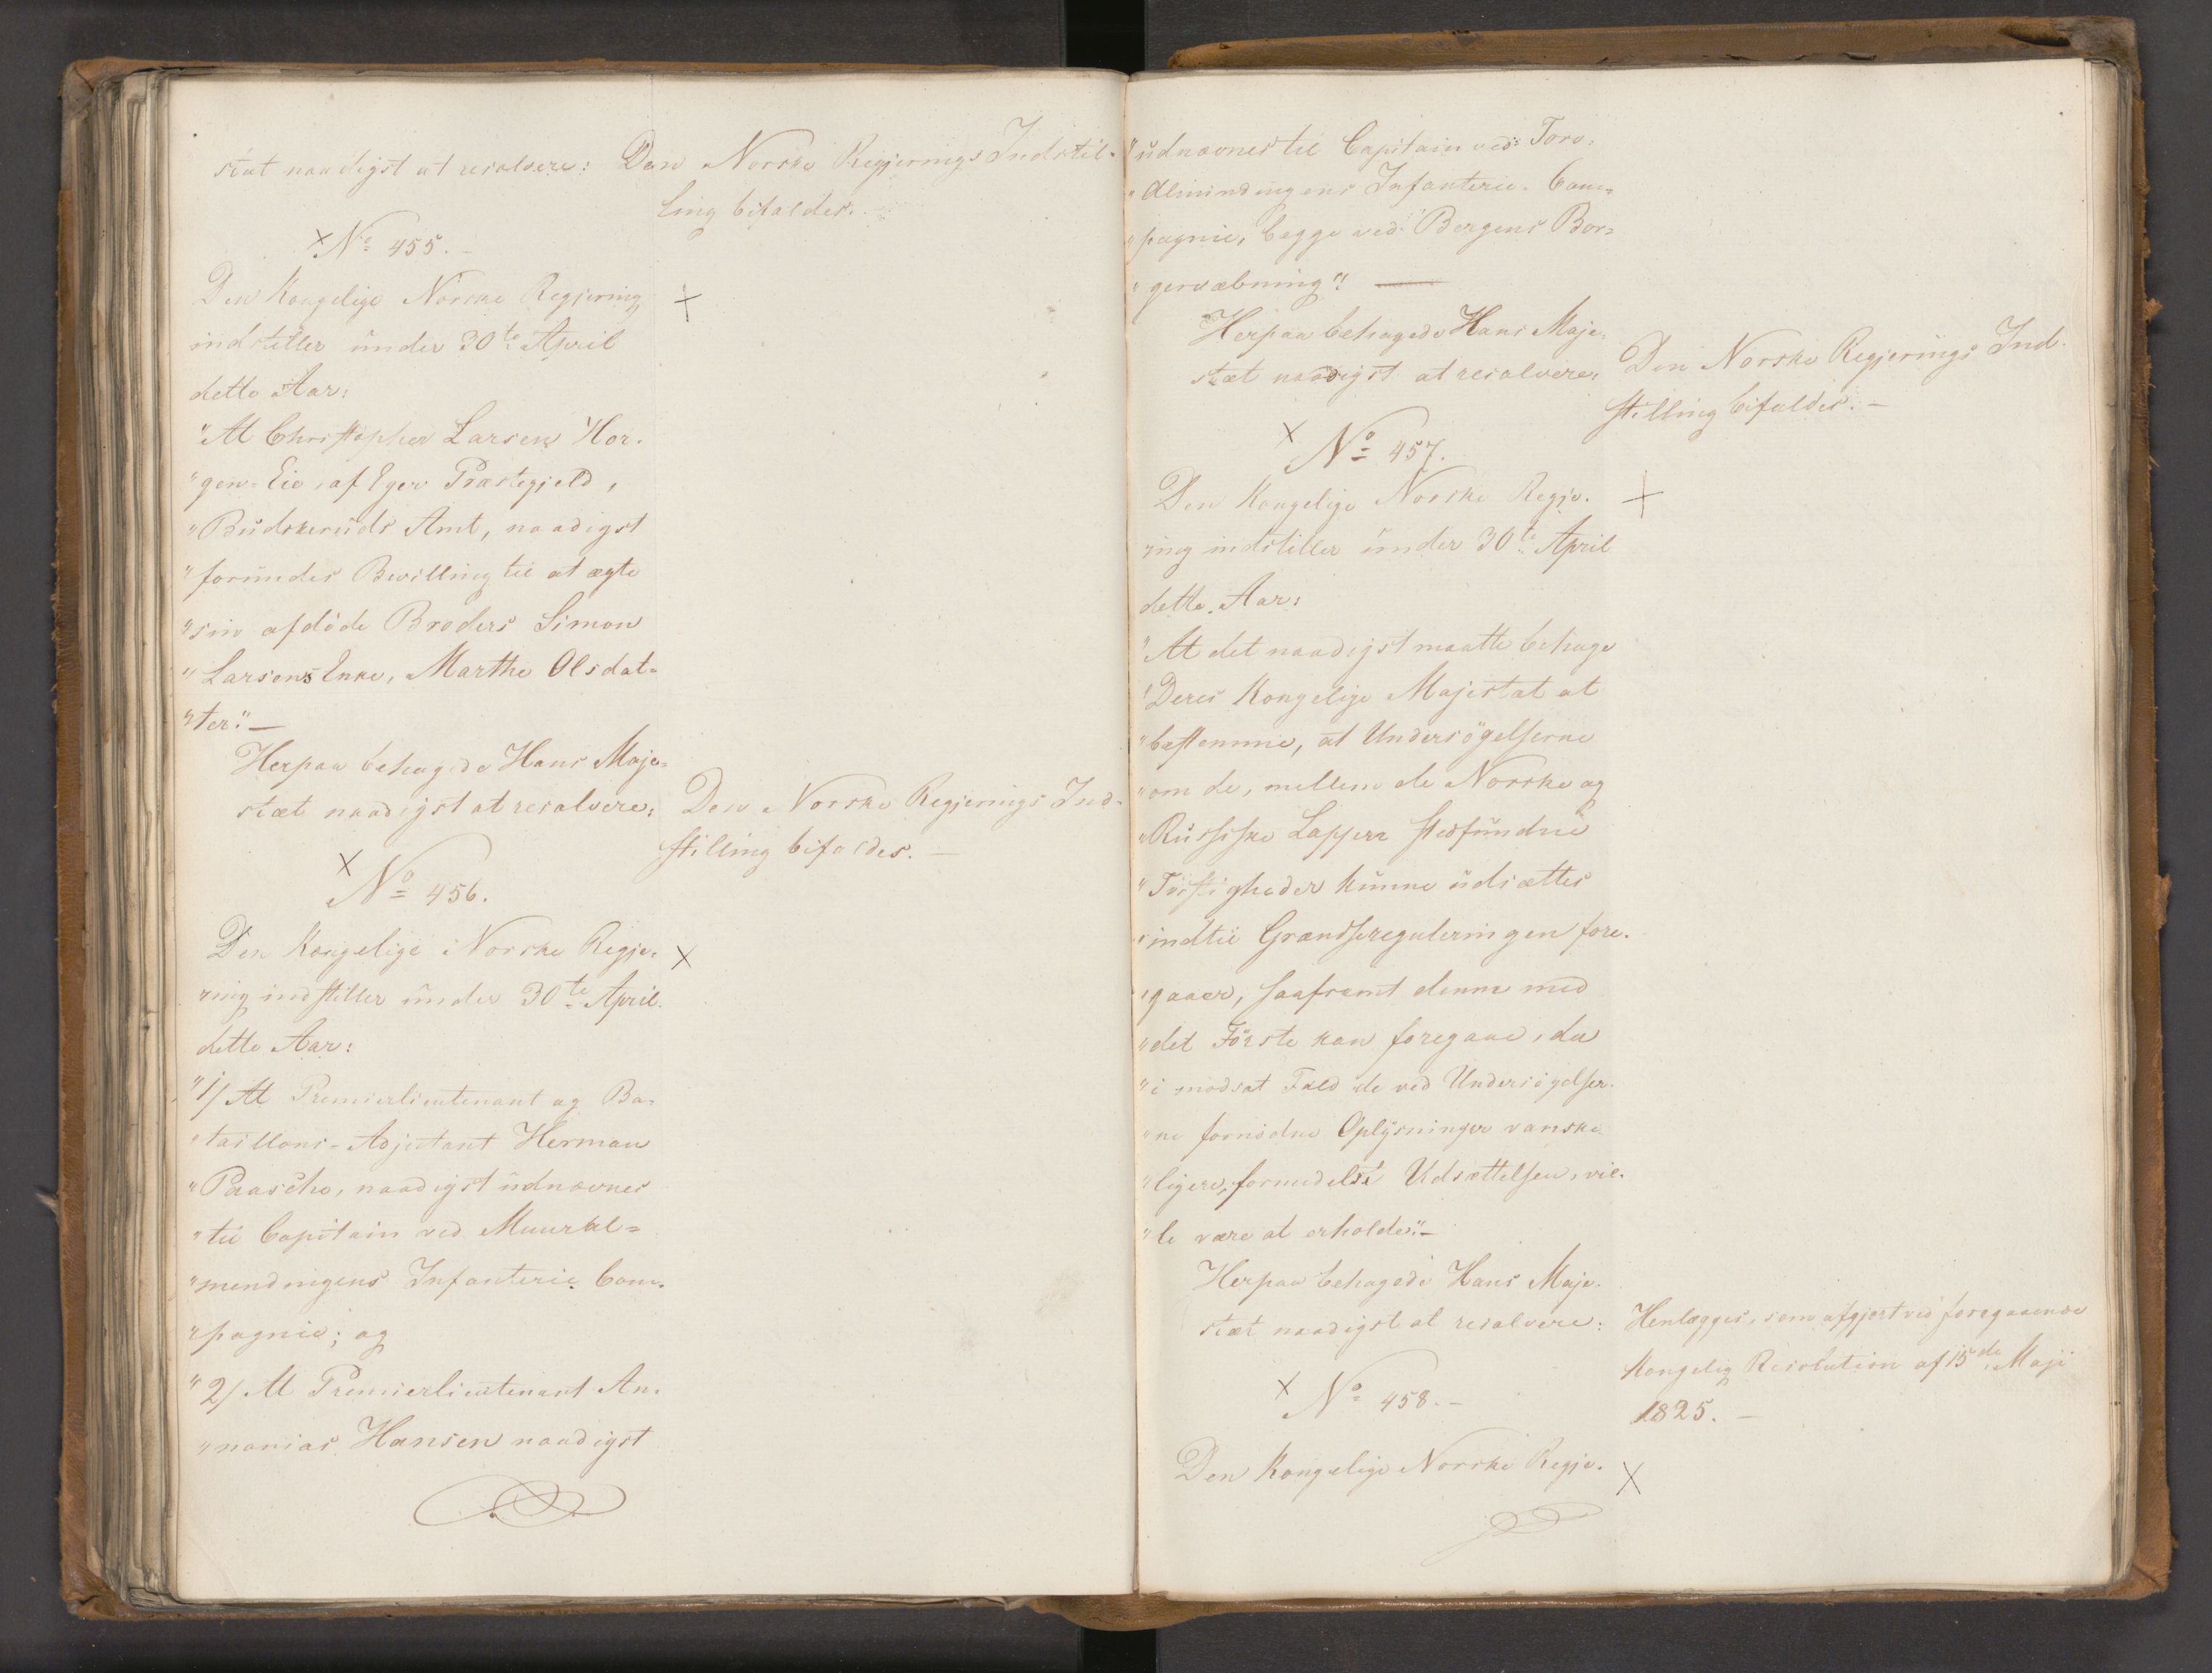 stæt naadigst at resolvere: Den Norske Regjerings Indstil-
ling bifaldes.
× No 455. -
Den Kongelige Norske Regjering ×
indstiller under 30te April
dette Aar:
"At Christopher Larsen Hor-
"gen-Eie, af Eger Præstegjeld,
"Budskeruds Amt, naadigst
"forundes Bevilling til at ægte
"sin afdöde Broders Simon
"Larsens Enke, Marthe Olsdat-
"ter." —
Herpaa behagede Hans Maje-
stæt naadigst at resolvere: Den Norske Regjerings Ind-
stilling bifaldes. —
× No 456.
Den Kongelige Norske Regje- ×
ring indstiller under 30te April
dette Aar:
"1/ At Premierlieutenant og Ba-
"taillons-Adjutant Herman
"Paasche, naadigst udnævnes
"til Capitain ved Muural-
"mendingens Infanterie Com-
"pagnie; og
"2/ At Premierlieutenant An-
"nanias Hansen naadigst
"udnævnes til Capitain ved Torv-
"Almindingens Infanterie Com-
"pagnie, begge ved Bergens Bor-
"gervæbning". —
Herpaa behagede Hans Maje-
stæt naadigst at resolvere: Den Norske Regjerings Ind-
stilling bifaldes. —
× No 457.
Den Kongelige Norske Regje- ×
ring indstiller under 30te April
dette Aar:
"At det naadigst maatte behage
"Deres Kongelige Majestæt at
"bestemme, at Undersögelserne
"om de, mellem de Norske og
"Russiske Lapper stedfundne
"Tvistigheder kunne udsættes
"indtil Grændsereguleringen fore-
"gaaer, saafremt denne med
"det Förste kan foregaae, da
"i modsat Fald de ved Undersögelser-
"ne fornödne Oplysninger vanske-
"ligere, formedelst Udsættelsen, vil-
"le være at erholde." —
Herpaa behagede Hans Maje-
stæt naadigst at resolvere: Henlægges, som afgjort ved foregaaende
Kongelig Resolution af 15de Maji
1825. —
× No 458. —
Den Kongelige Norske Regje- ×